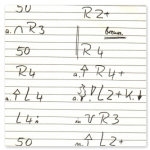 50
R2+
a. ∩ R3
50
R4
R4
a. ↑ R4+
a. ↑ L4
L2+
L4
m v R3
50
↑ L2+